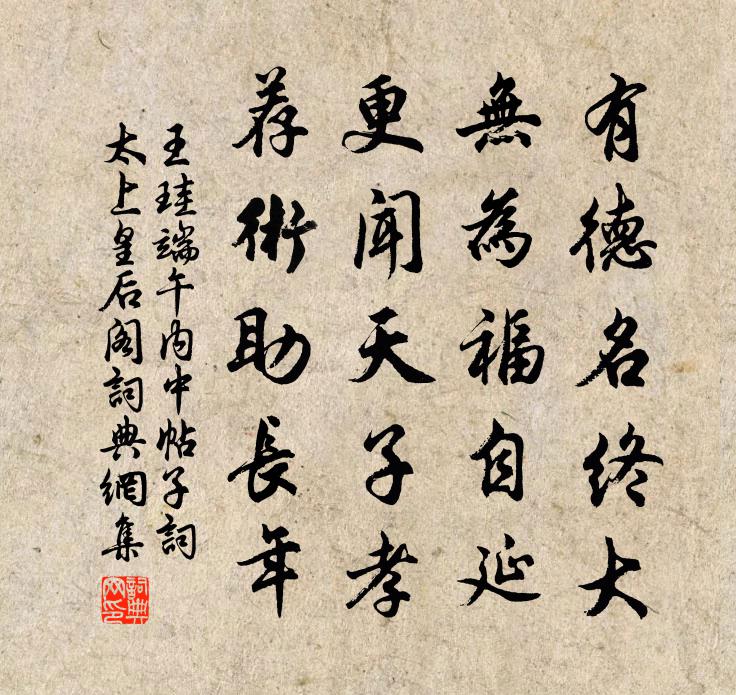 有德名終大
無為福自延
更聞天子孝
荐術助長年
王珪端午內中帖子詞
太上皇后阁詞典網集
詞典
网印